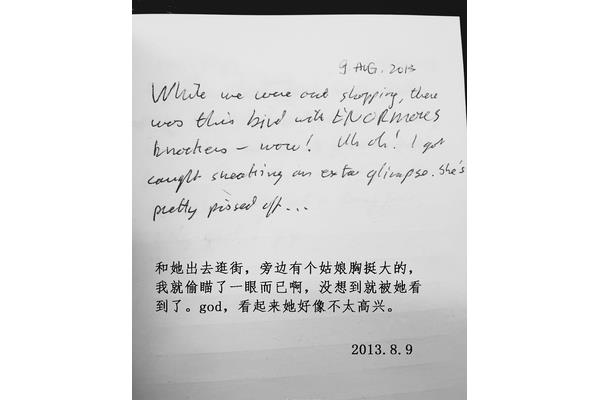 9 AUG. 2013
While we were out shopping, there
was this bird with ENORMOUS
knockers – wow! Uh oh! I got
caught sneaking an extra glimpse. She's
pretty pissed off...
和她出去逛街，旁边有个姑娘胸挺大的，
我就偷瞄了一眼而已啊，没想到就被她看
到了。god，看起来她好像不太高兴。
2013.8.9